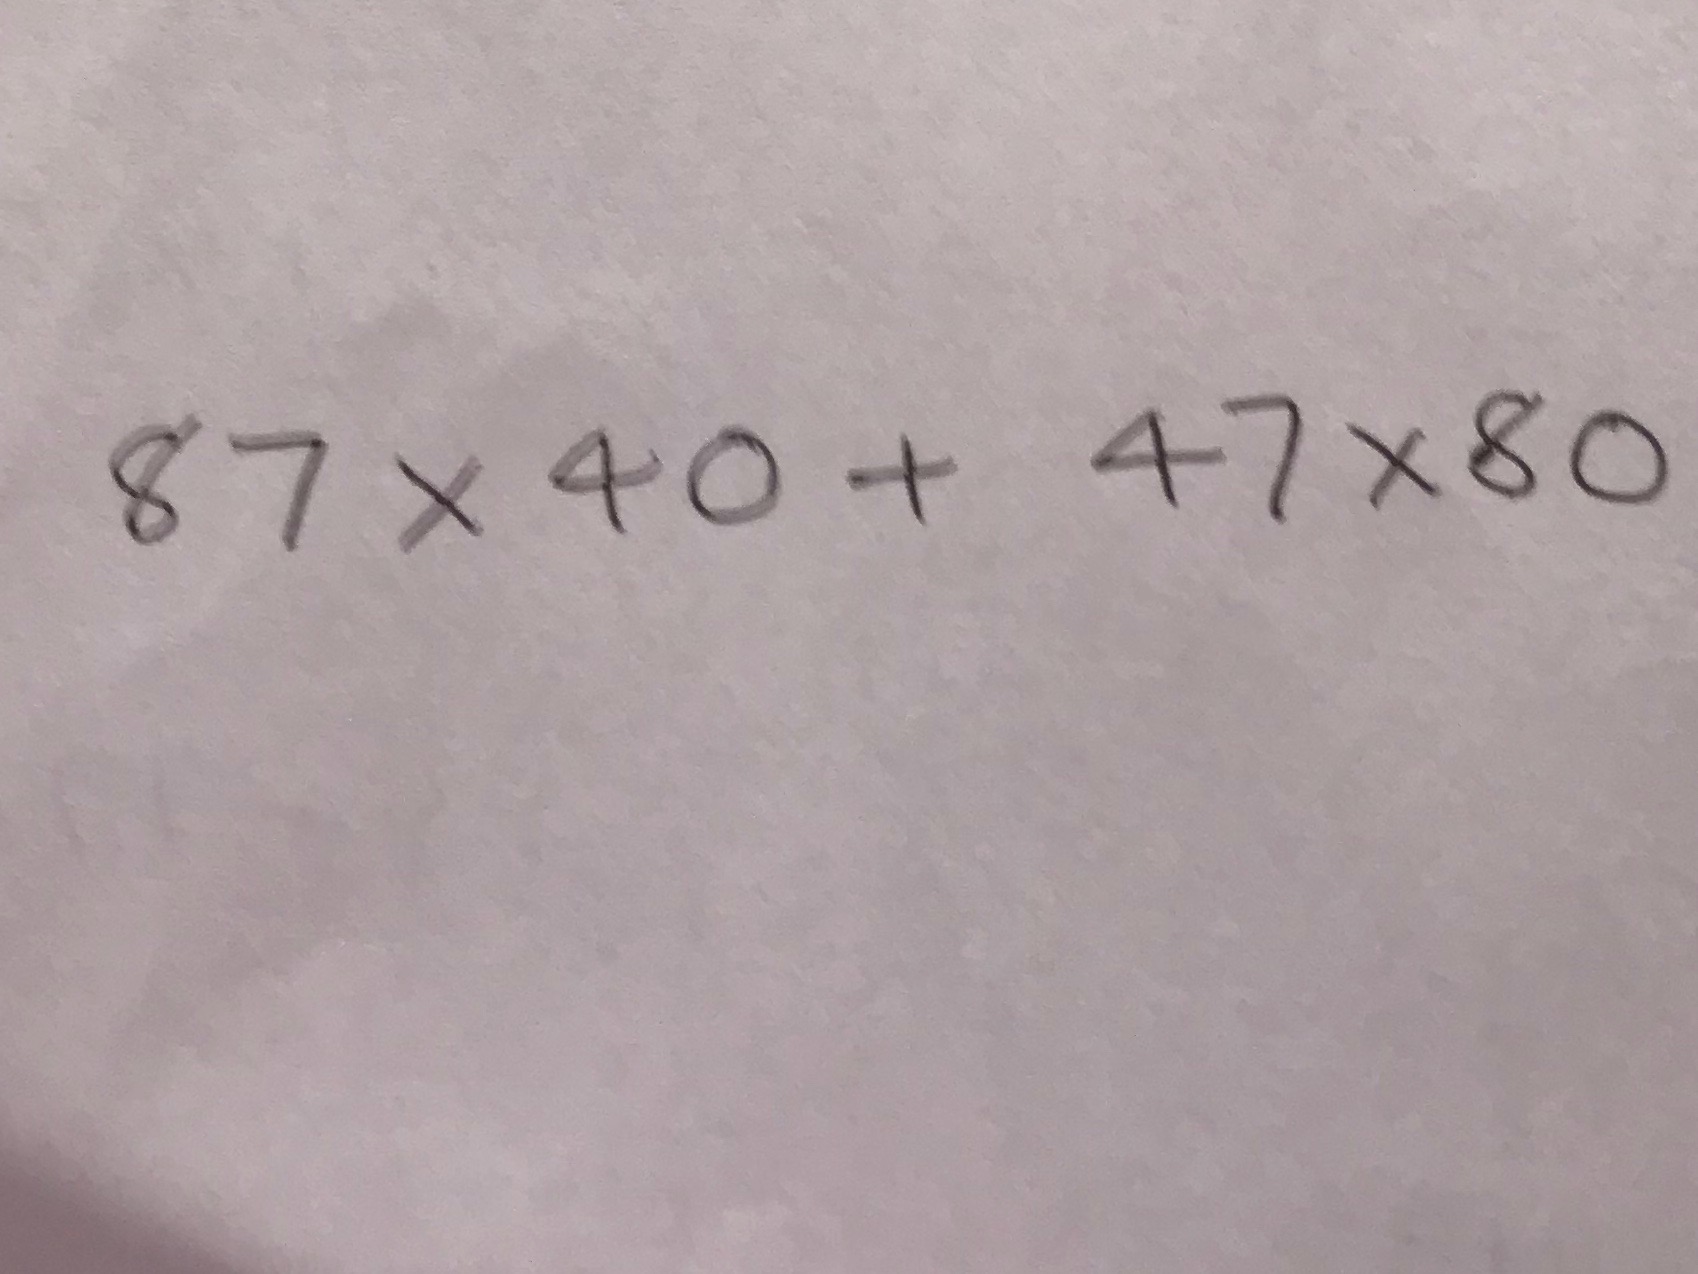 87 × 40 + 47 × 80